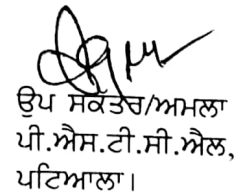 ਉਪ ਸਕੱਤਰ/ਅਮਲਾ
ਪੀ.ਐਸ.ਟੀ.ਸੀ.ਐਲ,
ਪਟਿਆਲਾ।